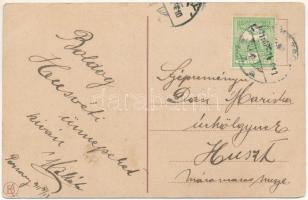 Boldog
Husveti
ünnepeket
kíván
Szépreményű
Dan Mariska
úrhölgynek
Huszt
Máramaros megye